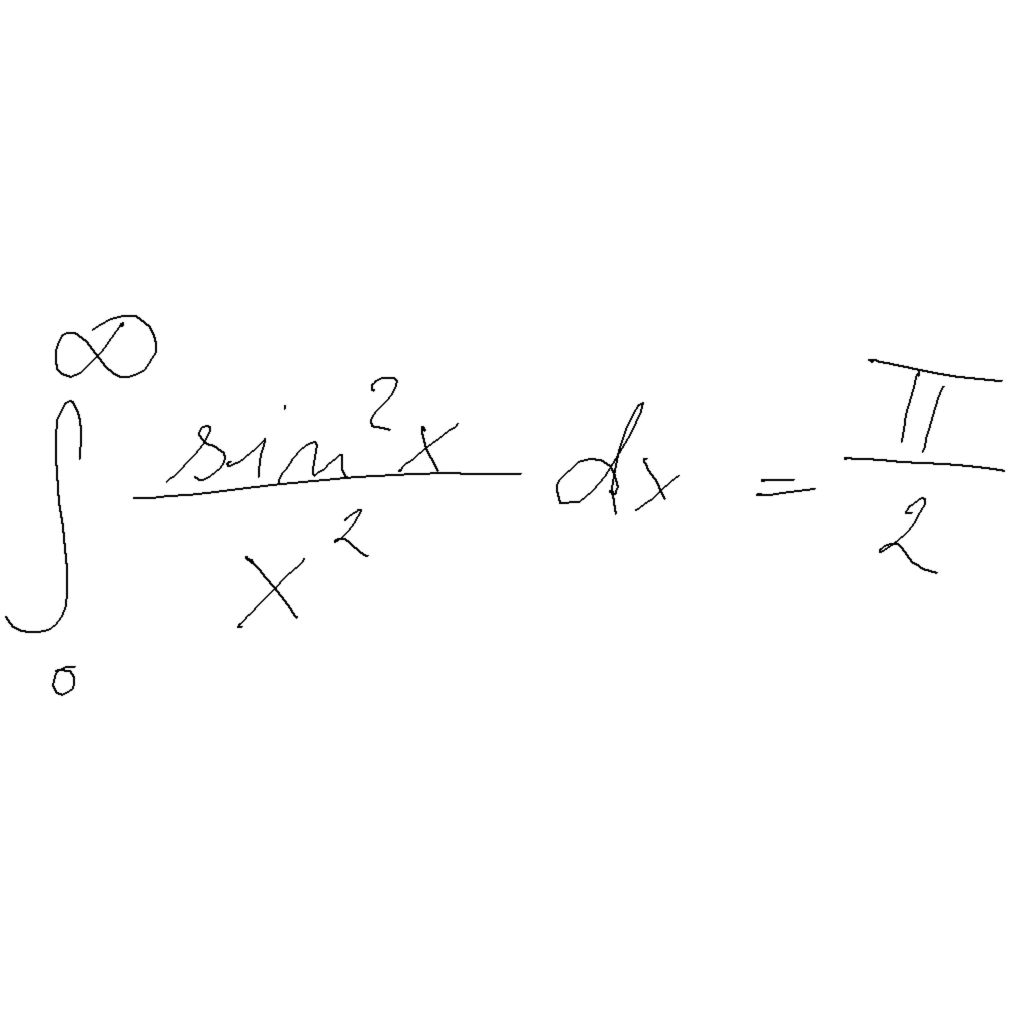 \int_{0}^{\infty} \frac{\sin^{2} x}{x^{2}} dx = \frac{\pi}{2}